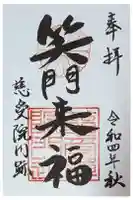 奉拝
笑門来福
令和四年秋
慈受院門跡